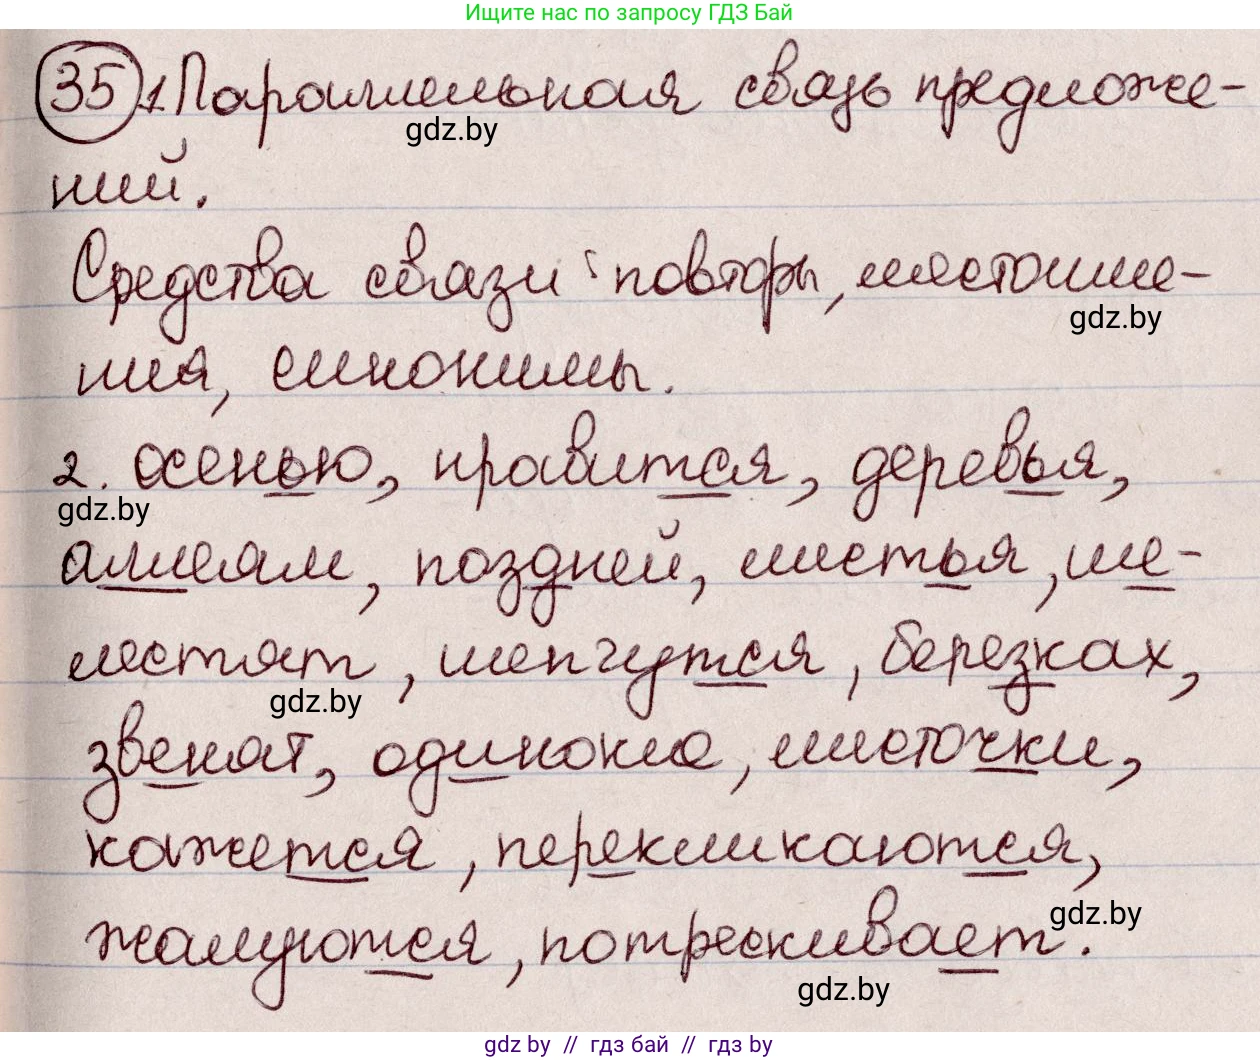 Ищите нас по запросу ГДЗ Бай
35 1. Параллельная связь предложе-
gdz.by
ний.
Средства связи: повторы, местоиме-
gdz.by
ния, синонимы.
2. осенью, нравится, деревья,
gdz.by
аллеям, поздней, листья, ше-
лестят, шепчутся, березках,
gdz.by
звенят, одинокие, листочки,
кажется, перекликаются,
gdz.by
жалуются, потрескивает.
gdz.by
gdz by // гдз бай // гдз by